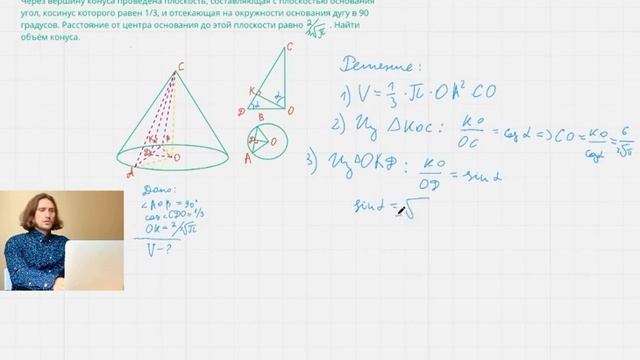 Через вершину конуса проведена плоскость, составляющая с плоскостью основания
угол, косинус которого равен 1/3, и отсекающая на окружности основания дугу в 90
градусов. Расстояние от центра основания до этой плоскости равно 2/∛π. Найти
объём конуса.
C
K
D
B
O
α
α
A
D
B
O
C
K
D
B
O
A
Дано:
∠AOB = 90°
cos∠CDO = 1/3
OK = 2/∛π
V - ?
Решение:
1) V = 1/3 · π · OA² · CO
2) Из △KOC: KO/OC = cos α => CO = KO/cos α = 6/∛π
3) Из △OKD: KO/OD = sin α
sin α = √